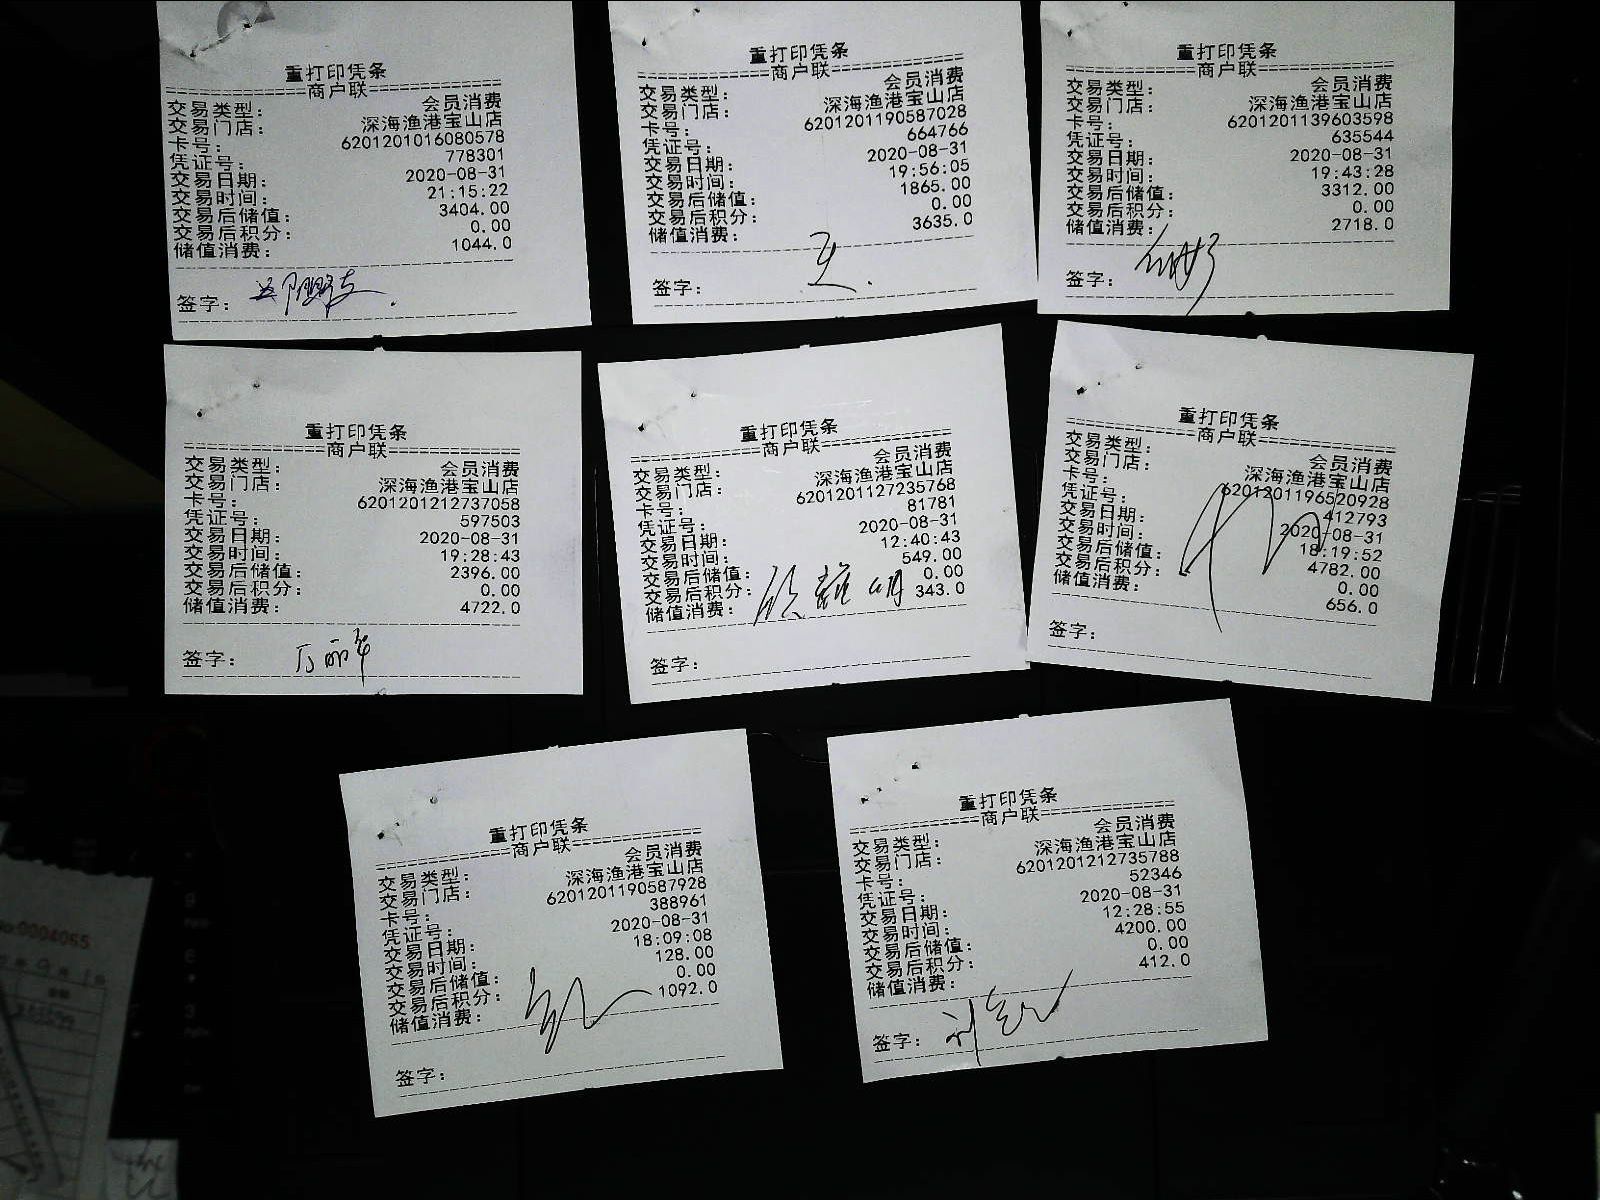 重打印凭条
商户联
交易类型: 会员消费
交易门店: 深海渔港宝山店
卡号: 6201201016080578
凭证号: 778301
交易日期: 2020-08-31
交易时间: 21:15:22
交易后储值: 3404.00
交易后积分: 0.00
储值消费: 1044.0
签字:
重打印凭条
商户联
交易类型: 会员消费
交易门店: 深海渔港宝山店
卡号: 6201201190587028
凭证号: 664766
交易日期: 2020-08-31
交易时间: 19:56:05
交易后储值: 1865.00
交易后积分: 0.00
储值消费: 3635.0
签字: 王.
重打印凭条
商户联
交易类型: 会员消费
交易门店: 深海渔港宝山店
卡号: 6201201139603598
凭证号: 635544
交易日期: 2020-08-31
交易时间: 19:43:28
交易后储值: 3312.00
交易后积分: 0.00
储值消费: 2718.0
签字:
重打印凭条
商户联
交易类型: 会员消费
交易门店: 深海渔港宝山店
卡号: 6201201212737058
凭证号: 597503
交易日期: 2020-08-31
交易时间: 19:28:43
交易后储值: 2396.00
交易后积分: 0.00
储值消费: 4722.0
签字:
重打印凭条
商户联
交易类型: 会员消费
交易门店: 深海渔港宝山店
卡号: 6201201127235768
凭证号: 81781
交易日期: 2020-08-31
交易时间: 12:40:43
交易后储值: 549.00
交易后积分: 0.00
储值消费: 343.0
签字:
重打印凭条
商户联
交易类型: 会员消费
交易门店: 深海渔港宝山店
卡号: 6201201196520928
凭证号: 412793
交易日期: 2020-08-31
交易时间: 18:19:52
交易后储值: 4782.00
交易后积分: 0.00
储值消费: 656.0
签字:
重打印凭条
商户联
交易类型: 会员消费
交易门店: 深海渔港宝山店
卡号: 6201201190587928
凭证号: 388961
交易日期: 2020-08-31
交易时间: 18:09:08
交易后储值: 128.00
交易后积分: 0.00
储值消费: 1092.0
签字:
重打印凭条
商户联
交易类型: 会员消费
交易门店: 深海渔港宝山店
卡号: 6201201212735788
凭证号: 52346
交易日期: 2020-08-31
交易时间: 12:28:55
交易后储值: 4200.00
交易后积分: 0.00
储值消费: 412.0
签字:
No.0004065